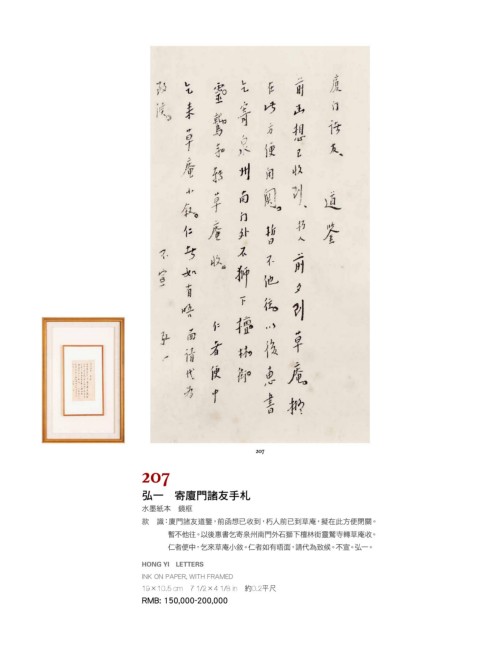 廈门诸友、道鉴
前函想已收到、朽人前夕到草庵。擬
在此方便用關。暫不他往。以後惠書
乞寄泉州南门外石獅下檀林街
靈鷲寺轉草庵收。仁者便中
乞来草庵小敘。仁者如有晤面請代為
致候。不宣 弘一
207
207
弘一 寄廈門諸友手札
水墨紙本 鏡框
款 識：廈門諸友道鑒，前函想已收到，朽人前已到草庵，擬在此方便閉關。
暫不他往。以後惠書乞寄泉州南門外石獅下檀林街靈鷲寺轉草庵收。
仁者便中，乞來草庵小敘。仁者如有晤面，請代為致候。不宣。弘一。
HONG YI LETTERS
INK ON PAPER, WITH FRAMED
19×10.5 cm 7 1/2×4 1/8 in 約0.2平尺
RMB: 150,000-200,000